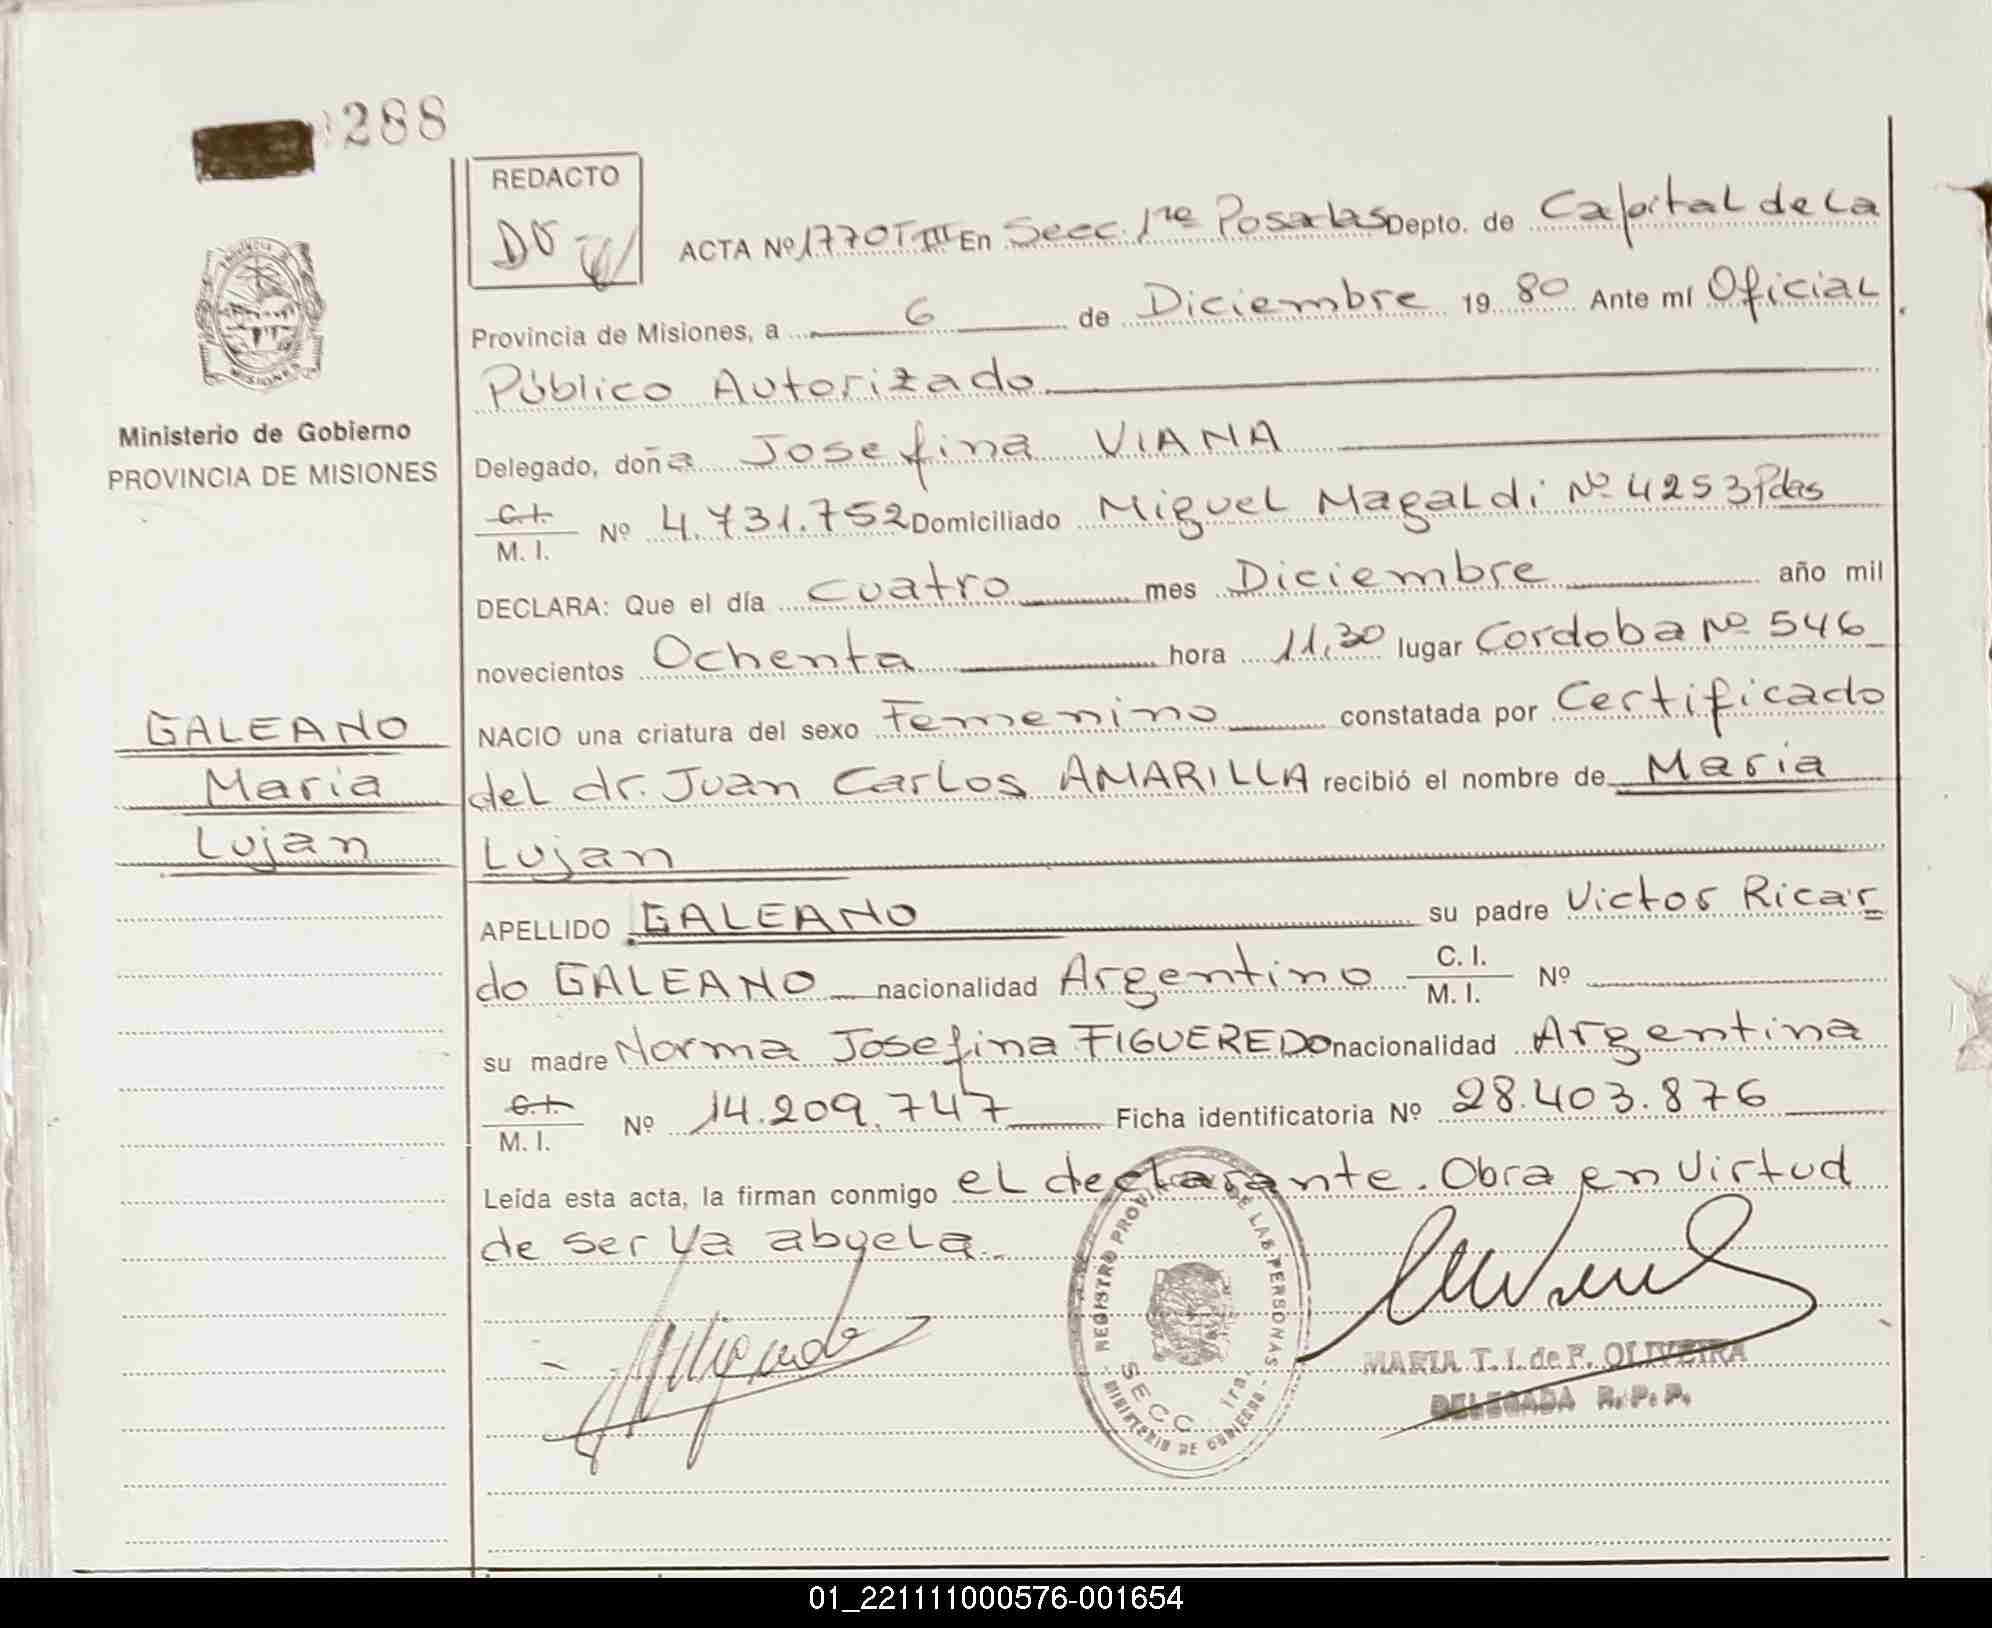 288
REDACTO
ACTA Nº 1770 T. III En Secc. 1ra Posadas Depto. de Capital de La
Provincia de Misiones, a 6 de Diciembre 1980 Ante mí Oficial
Público Autorizado
Ministerio de Gobierno
PROVINCIA DE MISIONES
MISIONES
Delegado, doña Josefina VIANA
C.I.
M. I. Nº 4.731.752 Domiciliado Miguel Magaldi Nº 4253 Pdas
DECLARA: Que el día cuatro mes Diciembre año mil
novecientos Ochenta hora 11,30 lugar Cordoba Nº 546
NACIO una criatura del sexo Femenino constatada por Certificado
del dr. Juan Carlos AMARILLA recibió el nombre de Maria
Lujan
GALEANO
Maria
Lujan
APELLIDO GALEANO su padre Victor Ricar
do GALEANO nacionalidad Argentino C. I.
M. I. Nº
su madre Norma Josefina FIGUEREDO nacionalidad Argentina
C.I.
M. I. Nº 14.209.747 Ficha identificatoria Nº 28.403.876
Leída esta acta, la firman conmigo el declarante. Obra en virtud
de ser La abuela.
REGISTRO PROV DE LAS PERSONAS
SECC. 1ra.
MINISTERIO DE GOBIERNO
MARIA T. I. de P. OLIVEIRA
DELEGADA R. P. P.
01_221111000576-001654